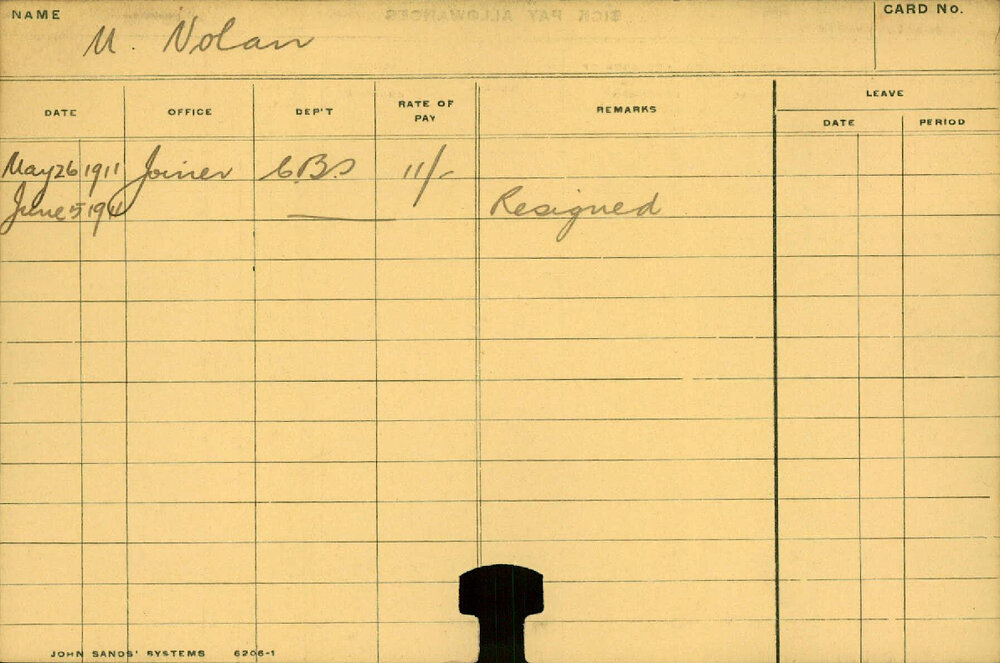 NAME
CARD No.
Nolan
DATE OFFICE DEP'T RATE OF PAY REMARKS LEAVE
DATE PERIOD
May 26 1911 Joiner C.B.S 11/-
June 5 Resigned
JOHN SANDS' SYSTEMS 6206-1